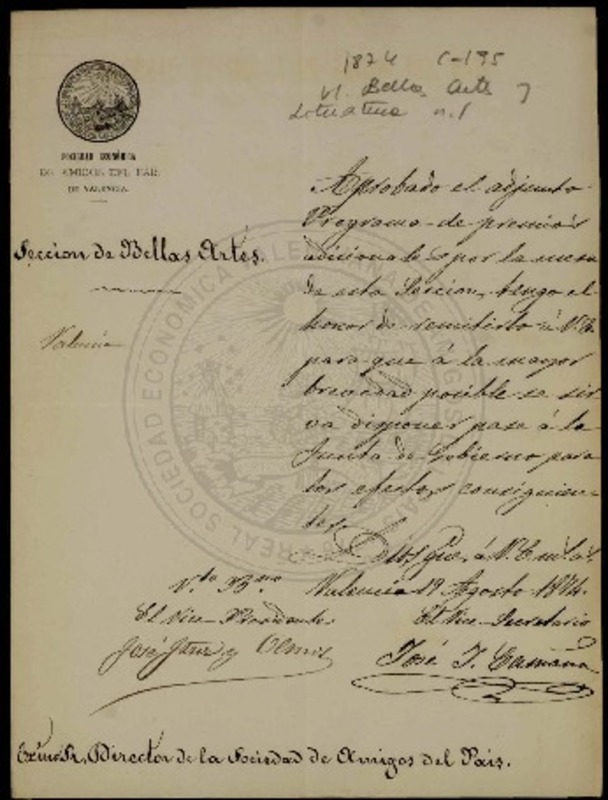 1874 C-195
VI. Bellas Artes y
Literatura n.1
SOCIEDAD ECONÓMICA
DE AMIGOS DEL PAIS
DE VALENCIA.
Seccion de Bellas Artes.
Valencia
Aprobado el adjunto
Programa de premios
adicionales por la mesa
de esta Seccion, tengo el
honor de remitirlo á V.E.
para que á la mayor
brevedad posible se sir
va disponer pase á la
Junta de Gobierno para
los efectos consiguien-
tes.
Dios gue. á V.E. m.s a.s
Valencia 19 Agosto 1874.
Vto. Bno.
El Vice-Presidente
El Vice-Secretario
José y Olmos
José J. Camaña
Exmo Sr. Director de la Sociedad de Amigos del Pais.